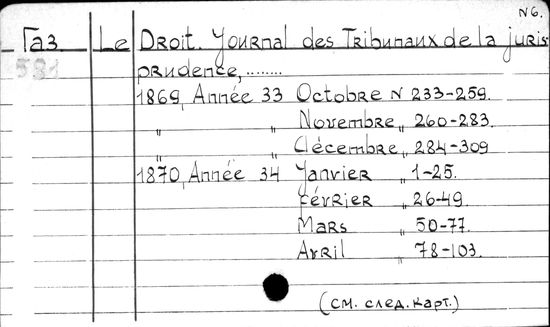 N6.
Газ Le Droit. Journal des Tribunaux de la juris
581 prudence,........
1869, Année 33 Octobre N 233-259.
" " Novembre " 260-283.
" " Décembre " 284-309
1870, Année 34 Janvier " 1-25.
Février " 26-49.
Mars " 50-77.
Avril " 78-103.
(см. след. карт.)